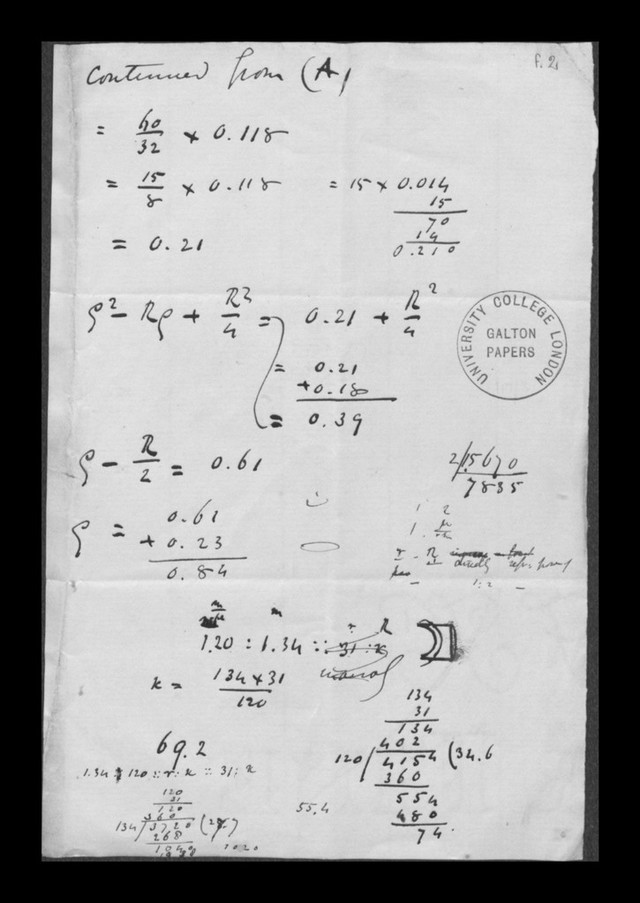 f. 2.
Continued from (A)
= 60/32 × 0.118
= 15/8 × 0.118 = 15 × 0.014
15
70
14
0.210
= 0.21
ρ² - Rρ + R²/4 = 0.21 + R²/4
= 0.21
+0.18
= 0.39
UNIVERSITY COLLEGE LONDON
GALTON
PAPERS
ρ - R/2 = 0.61
2/15670
7835
ρ = 0.61
+ 0.23
0.84
1 2
directly
1:2
m
r R
1.20 : 1.34 :: 31 : x
x = 134 × 31
120
134
31
134
402
120 / 4154 (34.6
360
554
480
74.
69.2
1.34 : 120 :: r : x :: 31 : x
120
31
120
360
134/3720 (27.7
268
1040
1020
55.4